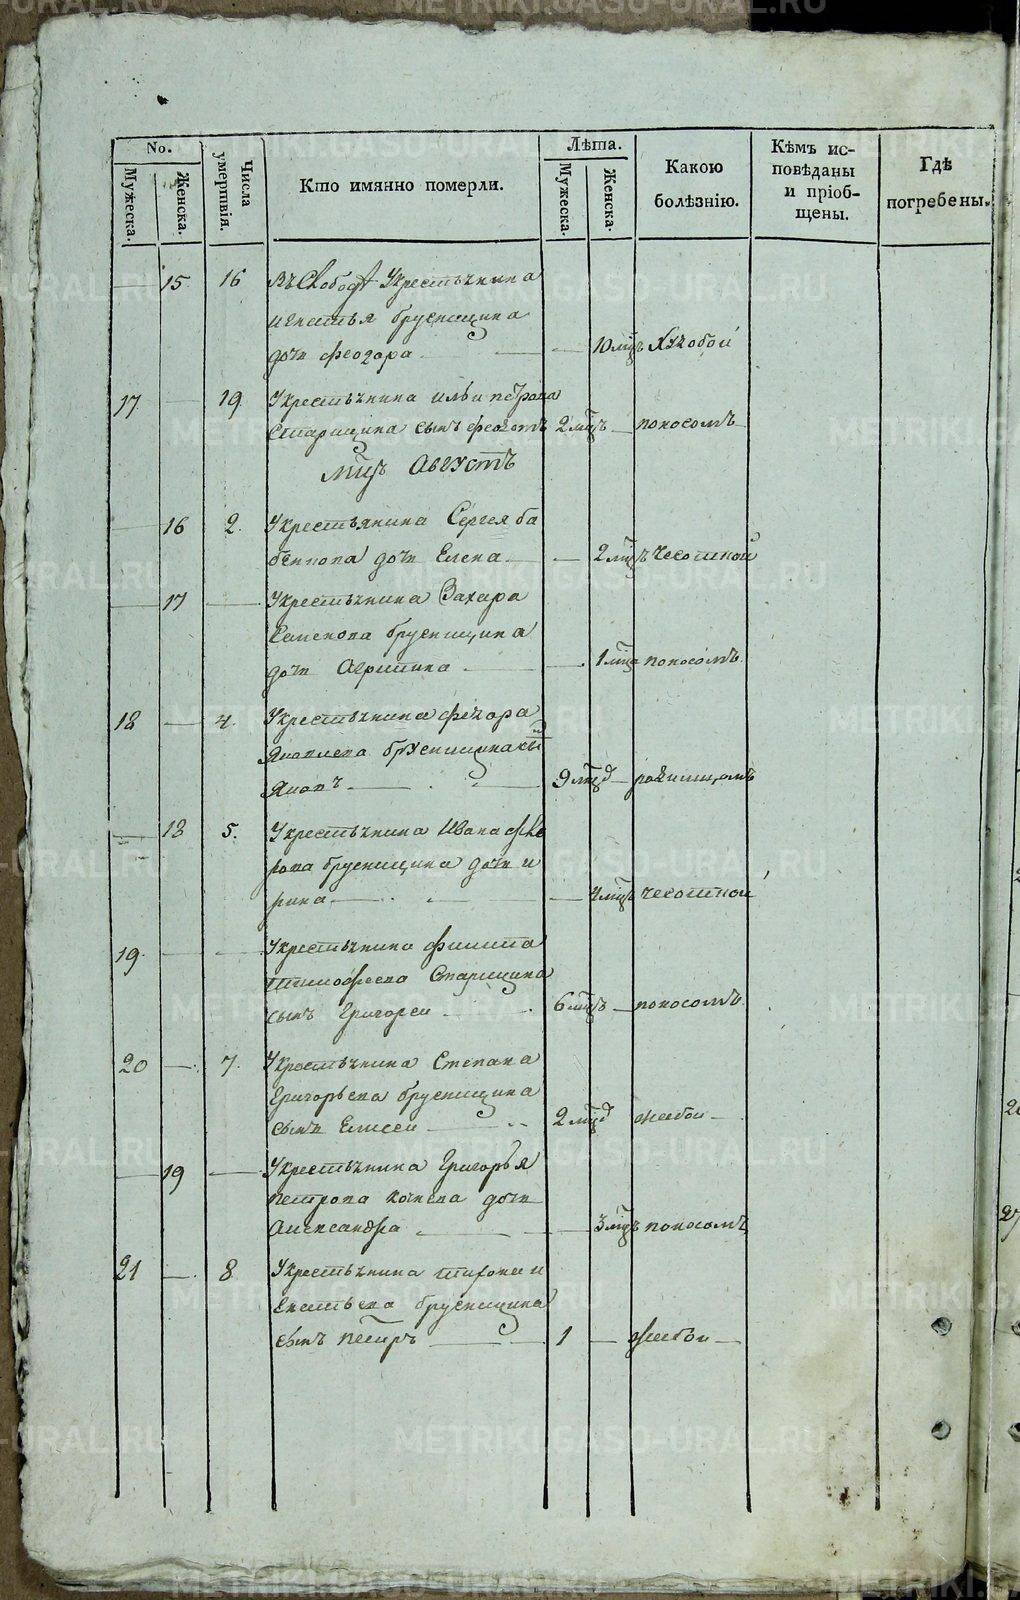 No.
Мужеска.
Женска.
Числа умертвія.
Кто имянно померли.
Лѣта.
Мужеска.
Женска.
Какою болѣзнію.
Кѣмъ исповѣданы и пріобщены.
Гдѣ погребены.
15 16 Въ Слободѣ Укрестьянина
игнатья брусницына
дочь феодора 10 мцъ Худобой
17 19 Укрестьянина ильи петрова
Старицына сынъ федотъ 2 мцъ поносомъ
мцъ Августъ
16 2. Укрестьянина Сергея ба
дочь Елена 2 мцъ Чесоткой
17 Укрестьянина Захара
Семенова брусницына
дочь Агрипина 1 мца поносомъ
18 4. Укрестьянина федора
Яковлева брусницына сынъ
Яковъ 9 мцд родимцомъ
18 5. Укрестьянина Ивана фе
рова брусницына дочь и
рина 4 мцъ чесоткой
19. Укрестьянина филипа
тимофеева Старицына
сынъ Григорей 6 мцъ поносомъ
20 7. Укрестьянина Степана
Григорьева брусницына
сынъ Елисеи 2 мцд жабои
19 Укрестьянина Григорья
петрова дочь
Александра 3 мцъ поносомъ
21 8 Укрестьянина тихона и
гнатьева брусницына
сынъ петръ 1 жабои
METRIKI.GASO-URAL.RU